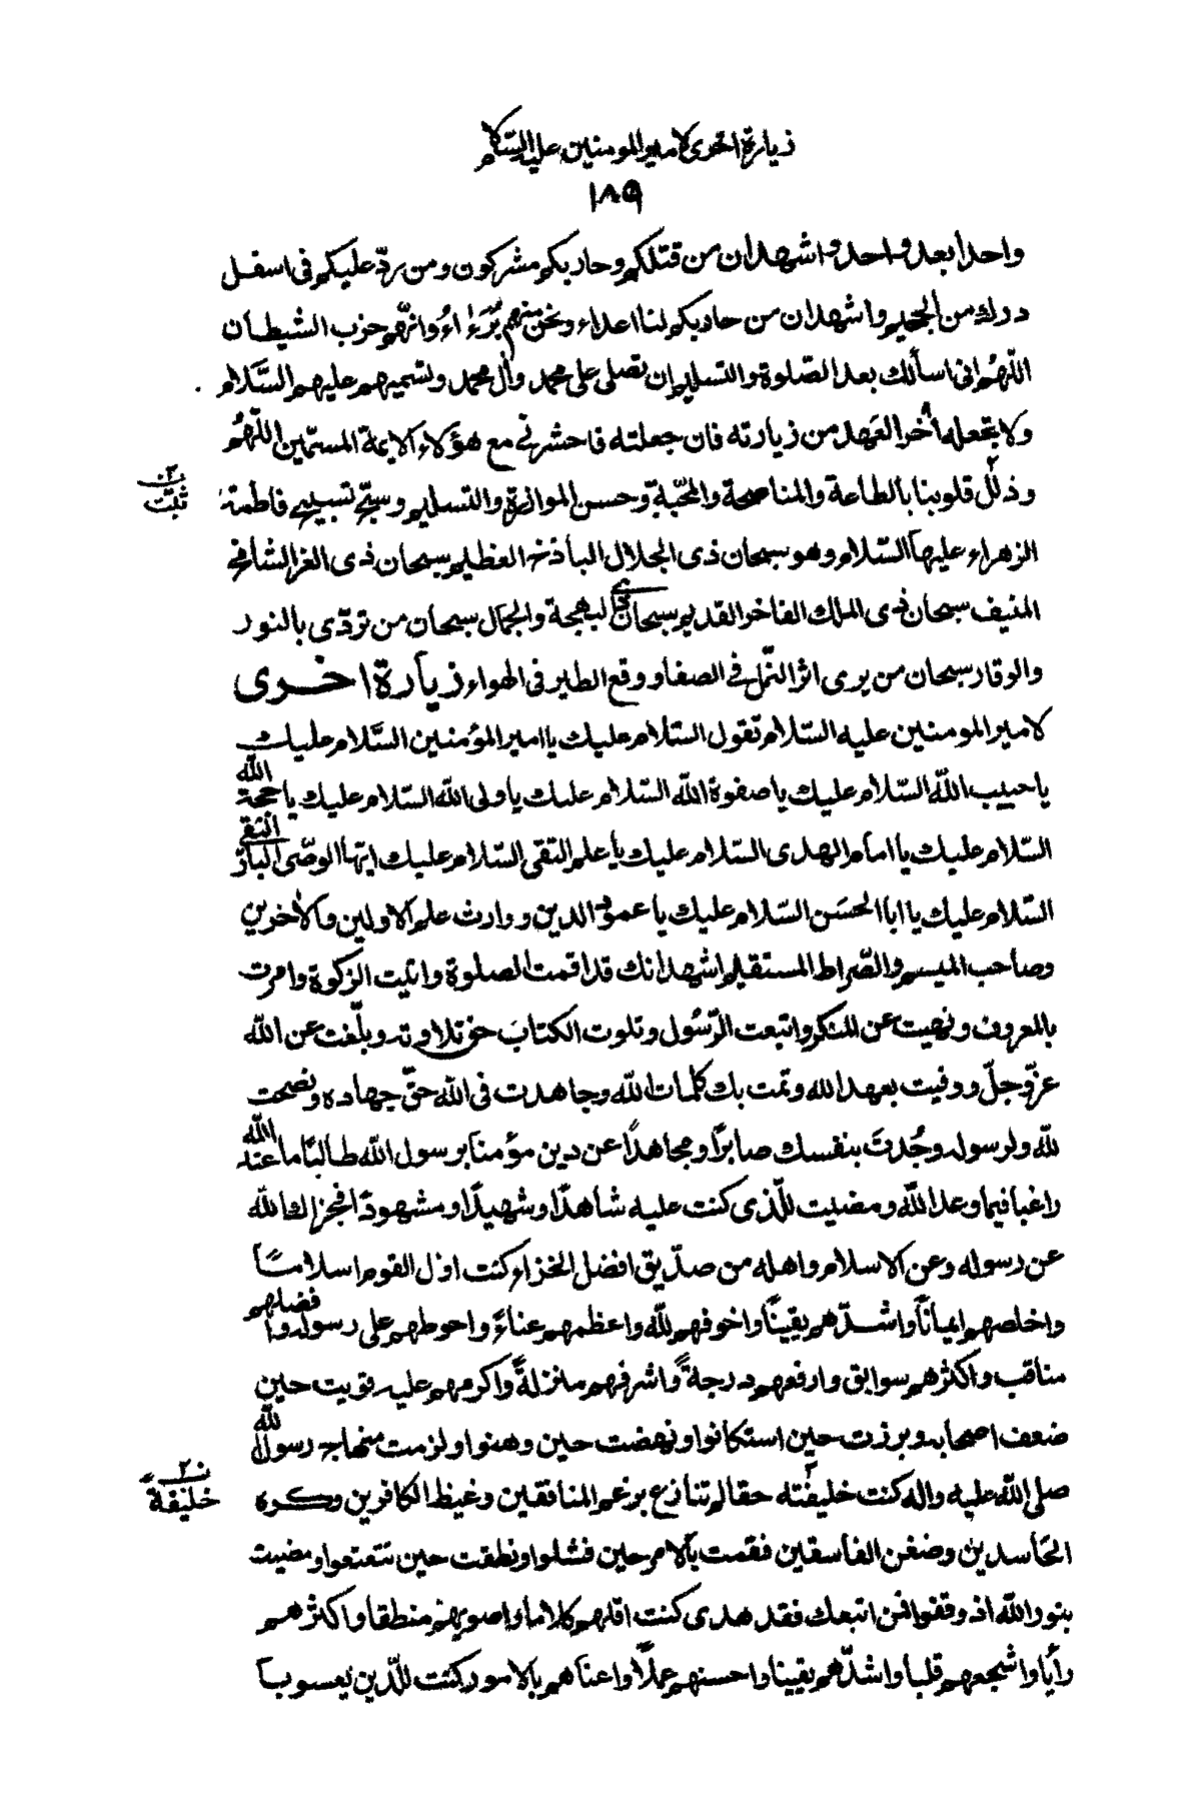 زيارة اخرى لامير المومنين عليه السّلام
١٨٩
واحدا بعد واحد واشهد ان من قتلكم وحاربكم مشركون ومن ردّ عليكم فى اسفل
درك من الجحيم واشهد ان من حاربكم لنا اعداء ونحن منهم بُرَءَاءُ وانّهم حزب الشيطان
اللّهُم انى اسألك بعد الصّلوة والتسليم ان تصلى على محمد وآل محمد وتسميهم عليهم السَّلام
ولا تجعله آخر العَهد من زيارته فان جعلته فاحشرنى مع هؤلاء الايمة المسمّين اللّهُم
وذلّل قلوبنا بالطاعة والمناصحة والمحّبة وحسن الموازرة والتسليم وسبّح تسبيح فاطمة
ن٢ ثلث
الزهراء عليها السّلام وهو سبحان ذى الجلال الباذخ العظيم سبحان ذى العز الشامخ
المنيف سبحان ذى الملك الفاخر القديم سبحان ذى البهجة والجمال سبحان من تردّى بالنور
والوقار سبحان من يرى اثر النّمل فى الصفا ووقع الطير فى الهواء زيارة اخرى
لامير المومنين عليه السّلام تقول السّلام عليك يا امير المؤمنين السَّلام عليك
يا حبيب اللّه السّلام عليك يا صفوة اللّه السّلام عليك يا ولى اللّه السّلام عليك يا حجة اللّه
السّلام عليك يا امام الهدى السّلام عليك يا علم التقى السّلام عليك ايّها الوصّى البارّ التقى
السّلام عليك يا ابا الحسَن السّلام عليك يا عمود الدين ووارث علم الاولين والآخرين
وصاحب الميسم والصّراط المستقيم اشهد انك قد اقمت الصلوة واتيت الزكوة وامرت
بالمعروف ونهيت عن المنكر واتبعت الرّسُول وتلوت الكتابَ حق تلاوته وبلّغت عن اللّه
عزّ وجلّ ووفيت بعهد الله وتمت بك كلمات اللّه وجاهدت فى اللّه حقّ جهاده ونصحت
للّه ولرسوله وجُدتَ بنفسك صابرًا ومجاهدًا عن دين مؤمنا برسول اللّه طالبًا ما عند اللّه
راغبا فيما وعد اللّه ومضيت للّذى كنت عليه شاهدًا وشهيدًا ومشهودًا فجزاك الله
عن رسوله وعن الاسلام واهله من صدّيق افضل الجزاء كنت اوّل القوم اسلاما
واخلصهم ايمانًا واشدّهم يقينًا واخوفهم للّه واعظمهم عناءً واحوطهم على رسوله وافضلهم
مناقب واكثرهم سوابق وارفعهم درجةً واشرفهم منزلةً واكرمهم عليه قويت حين
ضعف اصحابه وبرزت حين استكانوا ونهضت حين وهنوا ولزمت منهاج رسول اللّه
صلى اللّه عليه واله كنت خليفته حقا لم تنازع برغم المنافقين وغيظ الكافرين وكره
ن٢ خليفةً
الحاسدين وضغن الفاسقين فقمت بالامر حين فشلوا ونطقت حين تتعتعوا ومضيت
بنور اللّه اذ وقفوا فمن اتبعك فقد هدى كنت اقلهم كلاما واصوبهم منطقا واكثرهم
رأيا واشجعهم قلبا واشدّهم يقينا واحسنهم عملًا واعناهم بالامور كنت للّدين يعسوبا